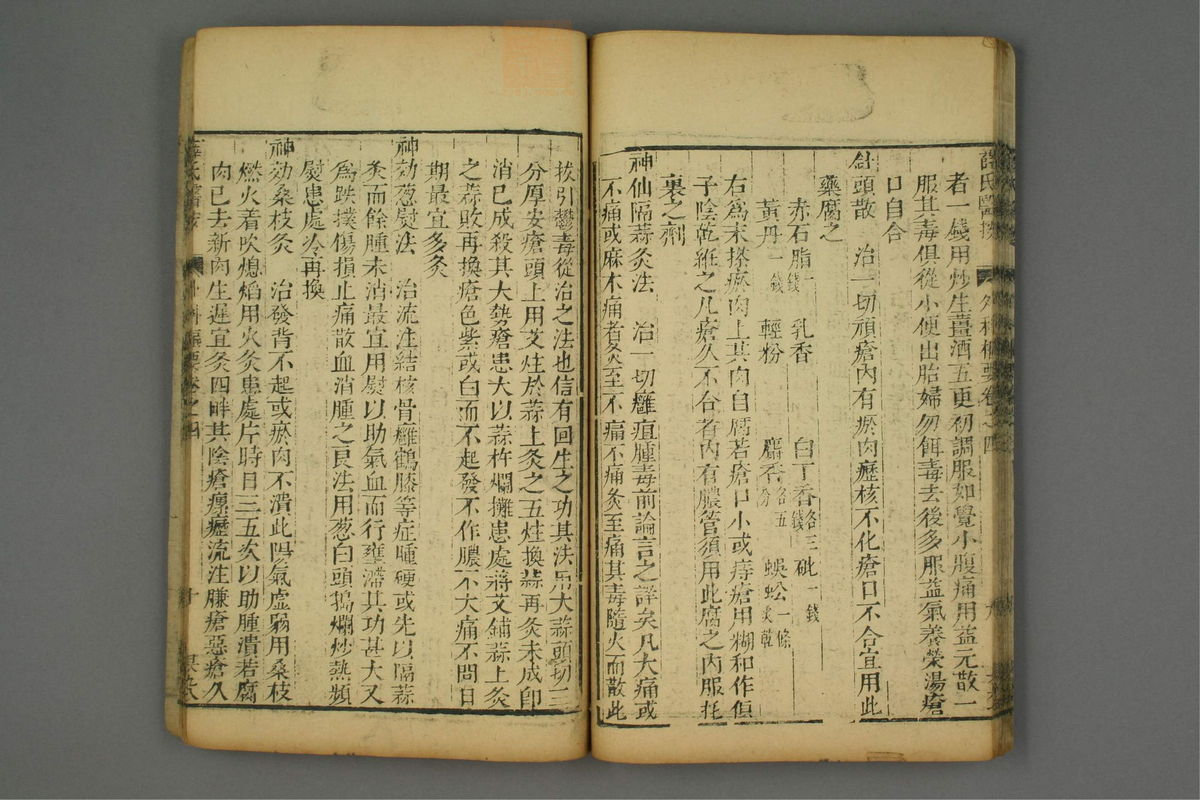 者一錢用炒生薑酒五更初調服如覺小腹痛用益元散一
服其毒俱從小便出胎婦勿餌毒去後多服益氣養榮湯瘡
口自合
針頭散　治一切頑瘡內有瘀肉癧核不化瘡口不合宜用此
藥腐之
赤石脂一錢　乳香　白丁香各三錢　砒一錢
黃丹一錢　輕粉　麝香各五分　蜈蚣一條炙乾
右為末搽瘀肉上其肉自腐若瘡口小或痔瘡用糊和作
子陰乾維之凡瘡久不合者內有膿管須用此腐之內服托
裏之劑
神仙隔蒜灸法　治一切癰疽腫毒前論言之詳矣凡大痛或
不痛或麻木痛者灸至不痛不痛灸至痛其毒隨火而散此
拔引鬱毒從治之法也信有回生之功其法用大蒜頭切三
分厚安瘡頭上用艾炷於蒜上灸之五炷換蒜再灸未成即
消已成殺其大勢瘡患大以蒜杵爛攤患處將艾鋪蒜上灸
之蒜敗再換瘡色紫或白而不起發不作膿不大痛不問日
期最宜多灸
神効葱熨法　治流注結核骨癰鶴膝等症腫硬或先以隔蒜
灸而餘腫未消最宜用熨以助氣血而行壅滯其功甚大又
為跌撲傷損止痛散血消腫之良法用葱白頭搗爛炒熱頻
熨患處冷再換
神効桑枝灸　治發背不起或瘀肉不潰此陽氣虛弱用桑枝
燃火着吹熄焰用火灸患處片時日三五次以助腫潰若腐
肉已去新肉生遲宜灸四畔其陰瘡瘰癧流注臁瘡惡瘡久